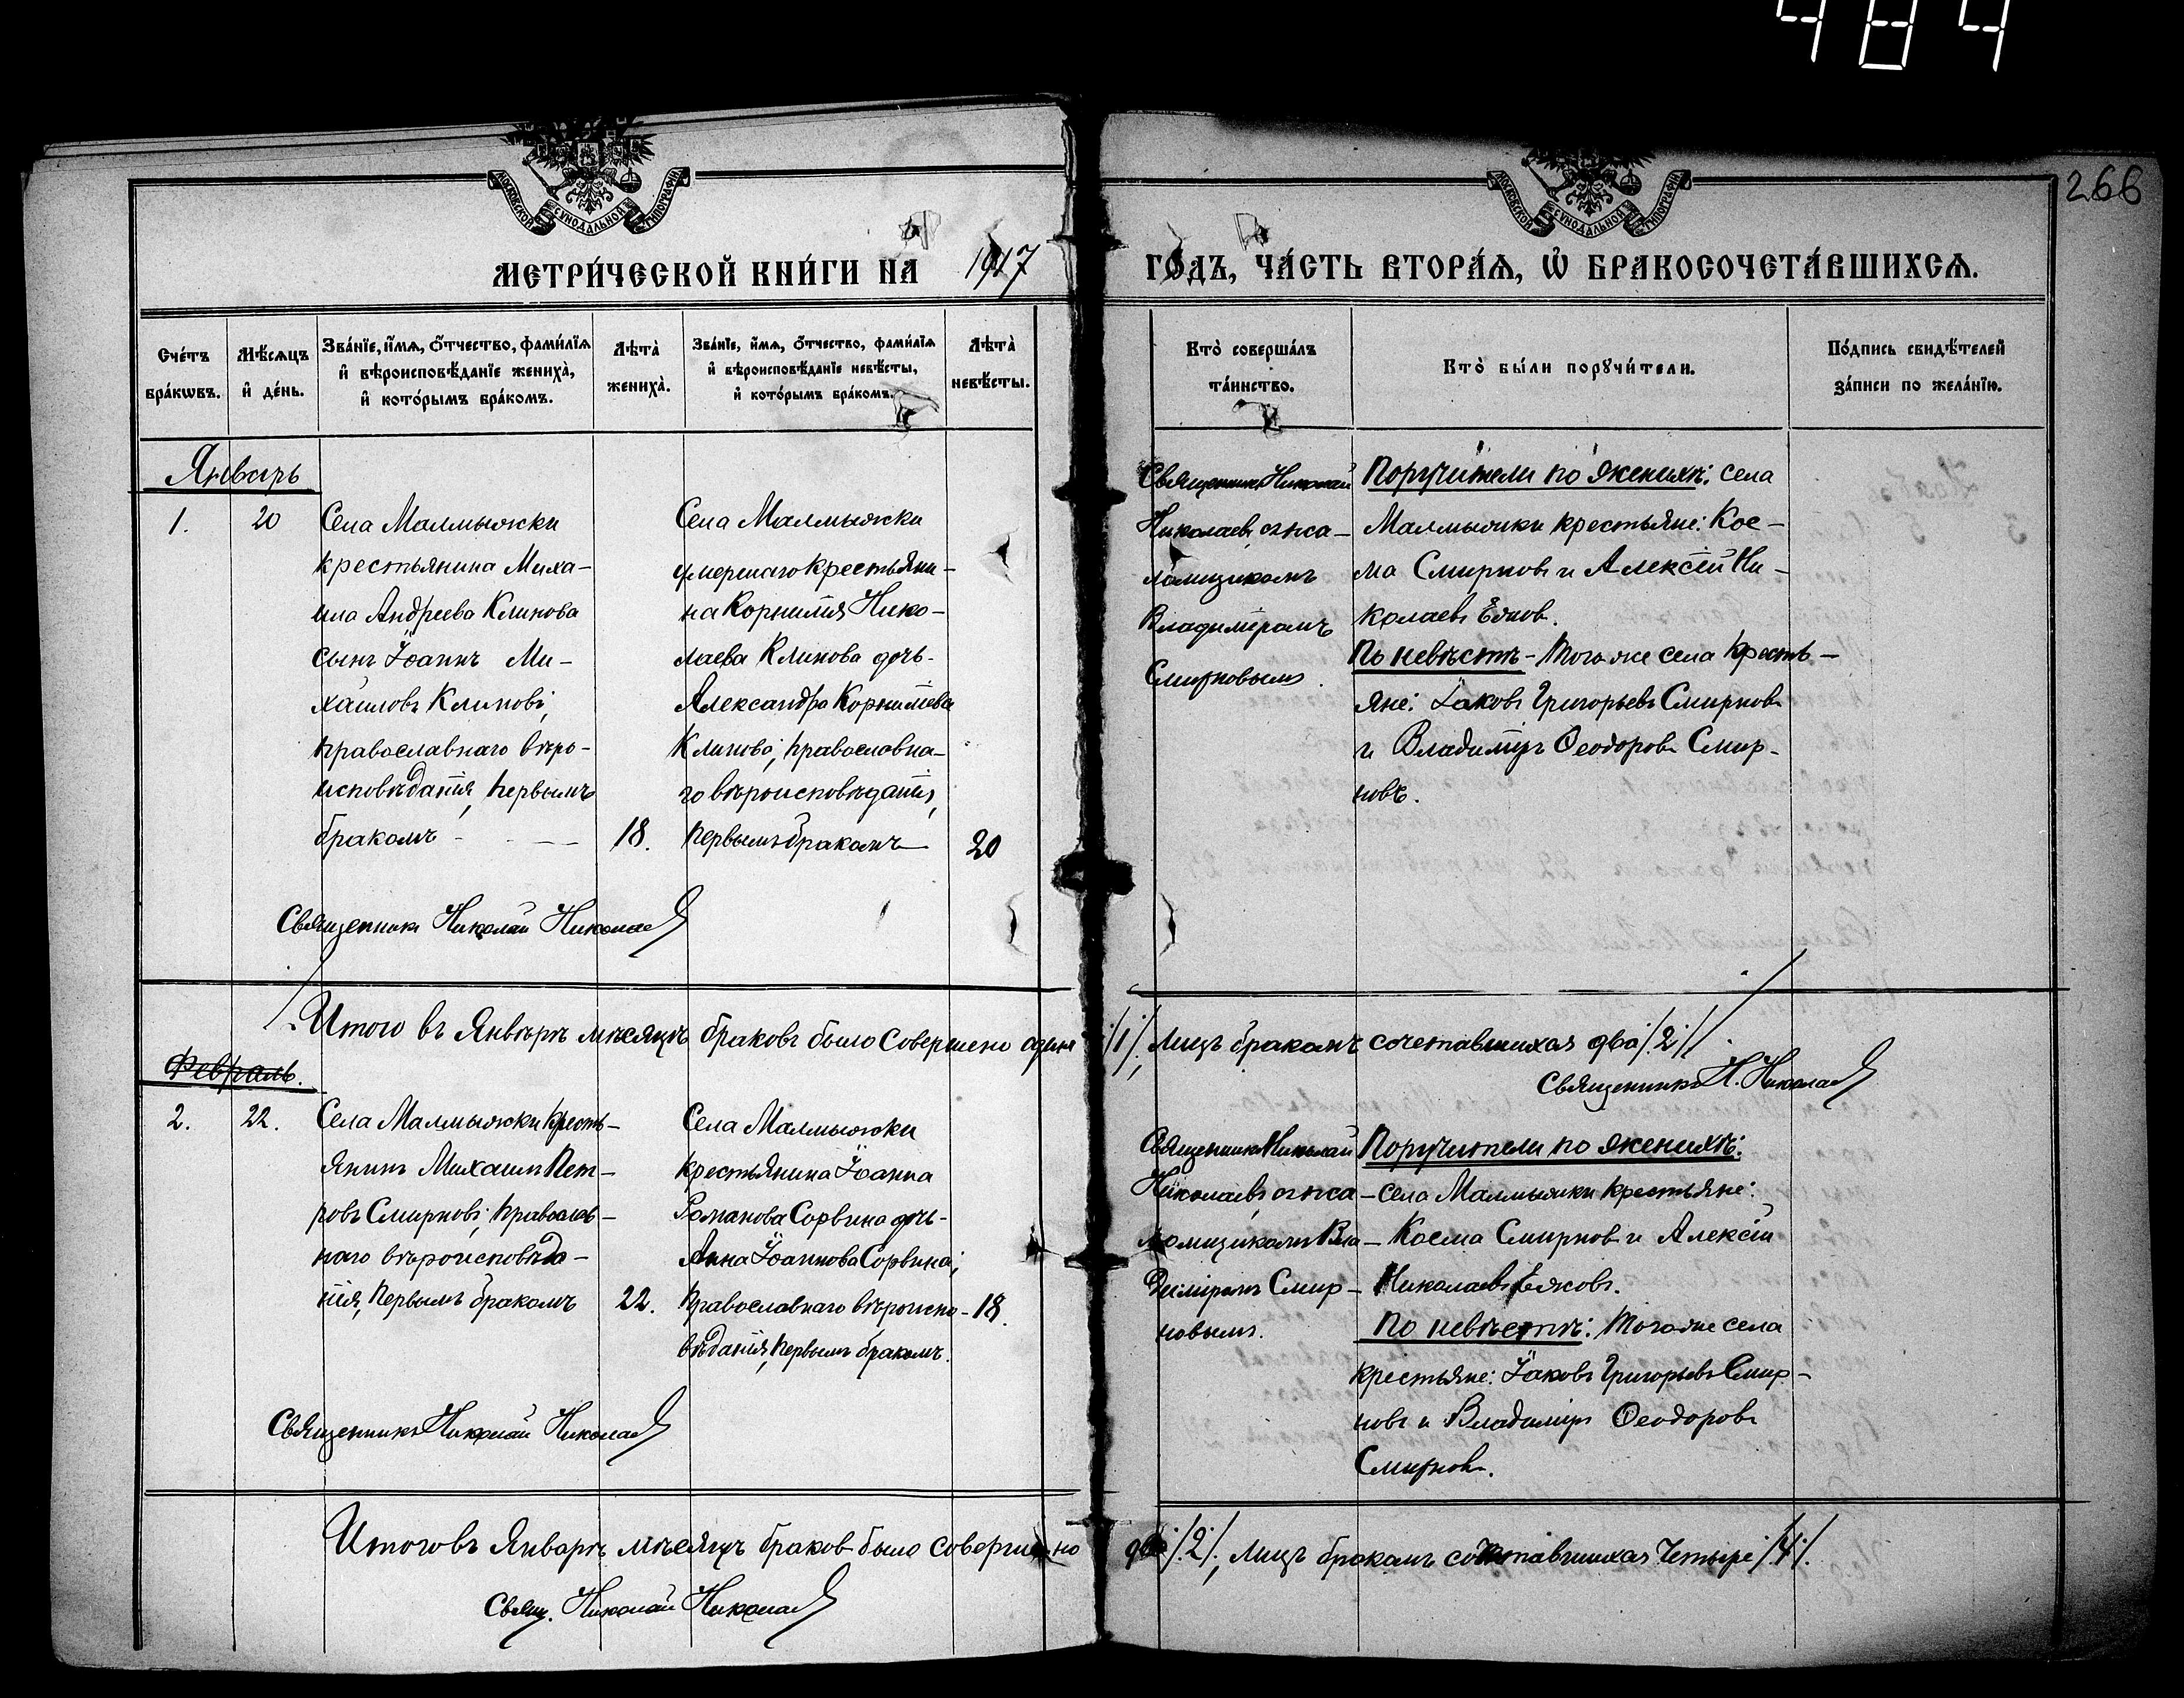 484
266
МОСКОВСКОЙ СѴНОДАЛЬНОЙ ТИПОГРАФІИ
МОСКОВСКОЙ СѴНОДАЛЬНОЙ ТИПОГРАФІИ
МЕТРИ́ЧЕСКОЙ КНИ́ГИ НА 1917 ГО́ДЪ, ЧА́СТЬ ВТОРА́Ѧ, Ѽ БРАКОСОЧЕТА́ВШИХСѦ.
Сче́тъ бра́кѡвъ.
Мѣ́сѧцъ и҆ де́нь.
Зва́нїе, и҆́мѧ, ѻ҆́тчество, фами́лїѧ
и҆ вѣроисповѣ́данїе жениха̀,
и҆ кото́рымъ бра́комъ.
Лѣта̀ жениха̀.
Зва́нїе, и҆́мѧ, ѻ҆́тчество, фами́лїѧ
и҆ вѣроисповѣ́данїе невѣ́сты,
и҆ кото́рымъ бра́комъ.
Лѣта̀ невѣ́сты.
Кто̀ соверша́лъ
та́инство.
Кто̀ бы́ли порꙋчи́тели.
По́дпись свидѣ́телей
за́писи по жела́нїю.
Январь
1.
20
Села Малмыжки
крестьянина Миха-
ила Андреева Климова
сынъ Іоаннъ Ми-
хаиловъ Климовъ,
православнаго вѣро-
исповѣданія, первымъ
бракомъ - - —
18.
Села Малмыжки
умершаго крестьяни-
на Корнилія Нико-
лаева Климова дочь-
Александра Корниліева
Климова; православна-
го вѣроисповѣданія,
первымъ бракомъ —
20
Священникъ Николай
Николаевъ съ пса-
ломщикомъ
Владиміромъ
Смирновымъ.
Поручители по женихѣ: села
Малмыжки крестьяне: Кос-
ма Смирновъ и Алексѣй Ни-
колаевъ Ежов.
По невѣстѣ - того же села кресть-
яне: Іаковъ Григорьевъ Смирновъ
и Владиміръ Ѳеодоровъ Смир-
новъ.
Священникъ Николай Николаев
Итого въ Январѣ мѣсяцѣ браковъ было совершено одинъ /1/, лицъ бракомъ сочетавшихся два /2/.
Священникъ Н. Николаев
Февраль.
2.
22.
Села Малмыжки кресть-
янинъ Михаилъ Пет-
ровъ Смирновъ; православ-
наго вѣроисповѣда-
нія, первымъ бракомъ
22.
Села Малмыжки
крестьянина Іоанна
Романова Сорвина дочь-
Анна Іоаннова Сорвина;
православнаго вѣроиспо-
вѣданія, первымъ бракомъ.
18.
Священникъ Николай
Николаевъ съ пса-
ломщикомъ Вла-
диміромъ Смир-
новымъ.
Поручители по женихѣ:
села Малмыжки крестьяне:
Косма Смирновъ и Алексѣй
Николаевъ Ежовъ.
По невѣстѣ: того же села
крестьяне: Іаковъ Григорьевъ Смир-
новъ и Владиміръ Ѳеодоровъ
Смирновъ.
Священникъ Николай Николаев
Итого въ Январѣ мѣсяцѣ браковъ было совершено два /2/, лицъ бракомъ сочетавшихся четыре /4/.
Свящ. Николай Николаев